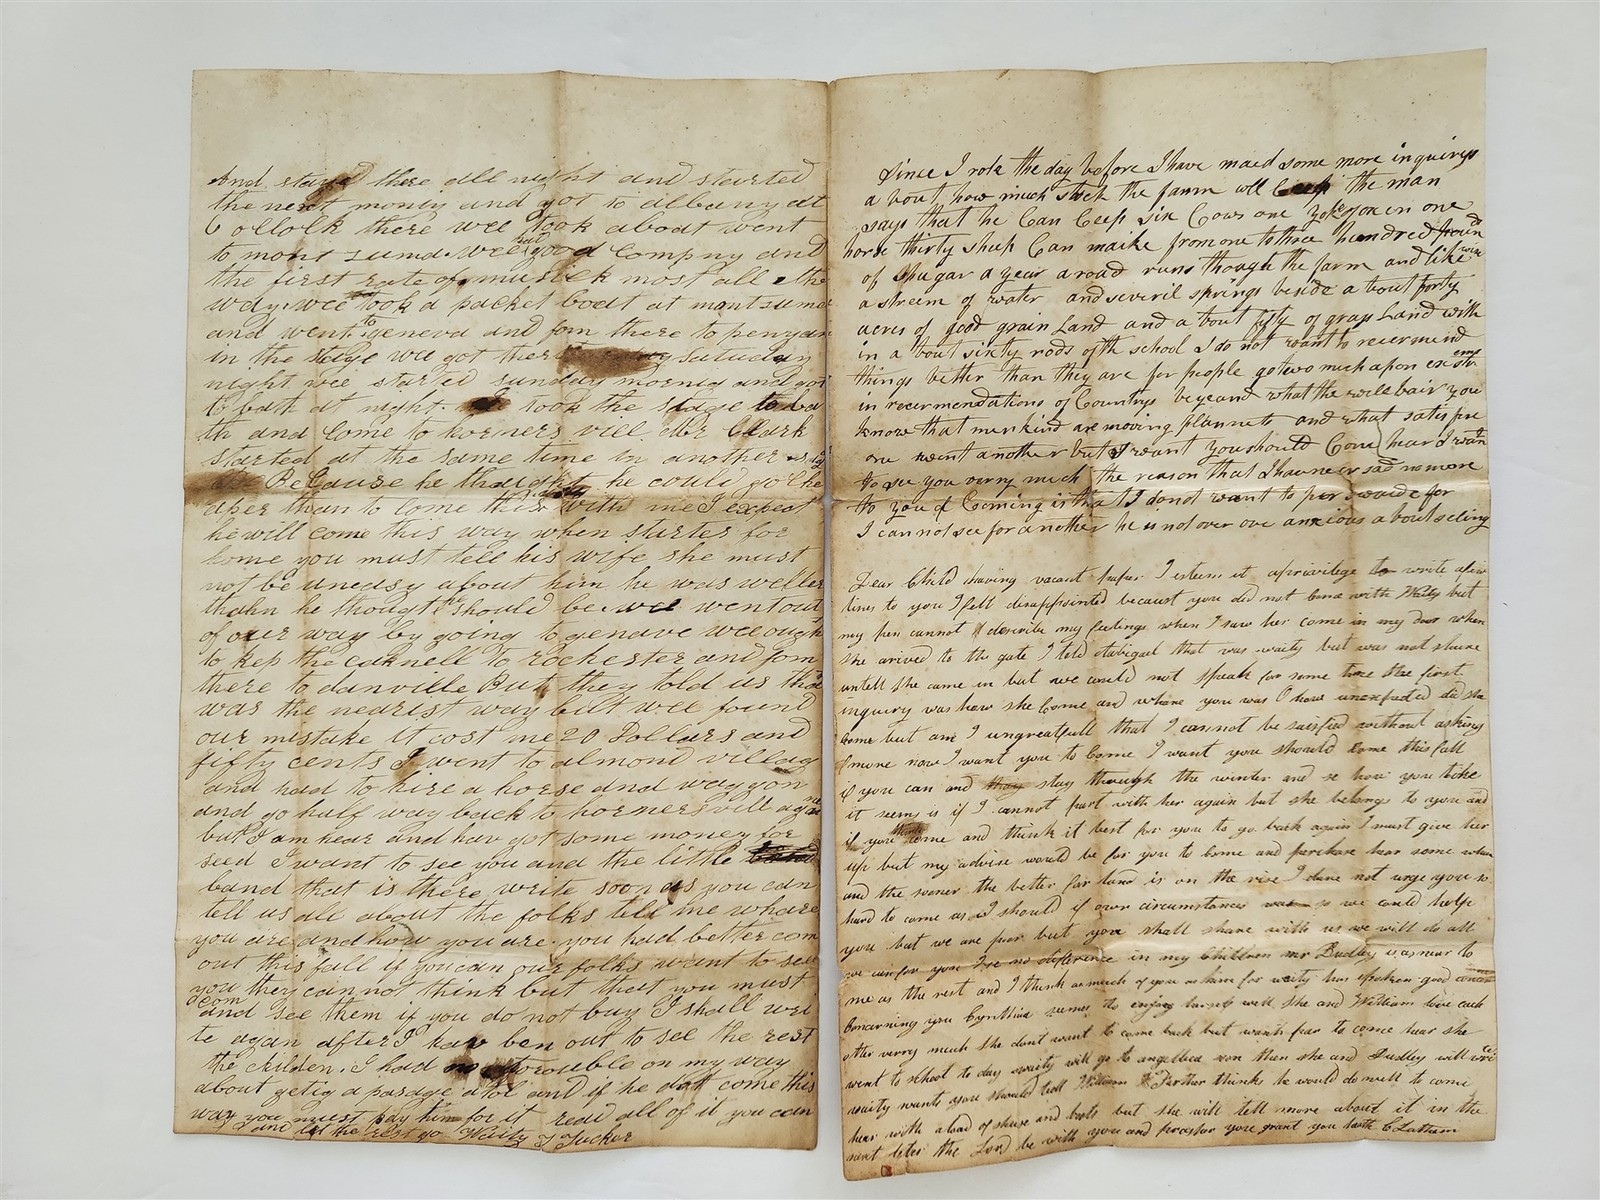 And stayed there all night and started
the next morny and got to albany at
6 ollolk there wee took aboat went
to mont zuma. wee had good Compny and
the first rate of musick most all the
way. wee took a packet boat at montzuma
and went to geneva and fom there to penyan
in the stage wee got there saturday
night wee started sunday mornig and got
to bath at night. took the stage to ba
th and Come to horners vill Mr Clark
started at the same time in another
Because he thought he could go che
aper than to Come this with me I expect
he will come this way when starter for
home you must tell his wife she must
not be uneasy about him he was weller
thahn he thought he should be. wee went out
of our way by going to genave wee ought
to kep the cannell to rochester and fom
there to danville But they told us that
was the nearest way but wee found
our mistake it cost me 20 Dollars and
fifty cents I went to almond villag
and had to hire a horse and waggon
and go half way back to horners vill again
but I am hear and hav got some money for
seed I want to see you and the little
band that is there write soon as you can
tell us all about the folks tell me whare
you are and how you are. you had better com
out this fall if you can our folks want to see
you they can not think but that you must
com and see them if you do not buy I shall wri
te again after I hav ben out to see the rest
the childen. I had no trouble on my way
about getig a pasage atol and if he dott come this
way you must pay him for it read all of it you can
and let the rest go Waity T Tucker
Since I rote the day before I have maed some more inquirys
a bout how much stock the farm will Ceep the man
says that he Can Ceep six Cows one yoke oxen one
horse thirty sheep Can maike from one to three hundred pound
of Shugar a year a road runs though the farm and like wise
a streem of water and severil springs beside a bout forty
acres of good grain Land and a bout fifty of grass Land with
in a bout sixty rods of th school I do not want to recermend
things better than they are for people go two much apon
in recermendations of Countrys beyeand what the will bair you
know that mankind are moving plannets and what satisfise
one wont another but I want you should Come hear I want
to see you verry much the reason that I have never sad no more
to you of Coming is that I do not want to perswaide for
I can not see for another he is not over ove anxious a bout seling
Dear Child having vacant paper I esteem it a privilege to write a few
lines to you I felt disappointed because you did not come with Waity but
my pen cannot describe my feelings when I saw her come in my door when
she arived to the gate I told Abigail that was waity but was not shure
untell she came in but we could not speak for some time the first
inquiry was how she Come and whare you was O how unexpected did she
come but am I ungreatfull that I cannot be satisfied without asking
for more now I want you to Come I want you should come this fall
if you can and stay through the winter and se how you like
it seems is if I cannot part with her again but she belongs to you and
if you come and think it best for you to go back again I must give her
up but my advise would be for you to come and purchase hear some whare
and the sooner the better for land is on the rise I dare not urge you so
hard to come as I should if our circumstances was so we could help
you but we are poor but you shall share with us we will do all
we can for you I se no difference in my Children mr Dudley was near to
me as the rest and I think as much of you as him for waity has spoken good
Concerning you Cynthia seems to enjoy herself well she and William love each
other verry much she dont want to come back but wants par to come hear she
went to school to day waity will go to angellica soon then she and Dudley will write
waity wants you should tell William thinks he would do well to come
hear with a load of shues and boots but she will tell more about it in the
next leter the Lord be with you and prosper you grant you C Latham